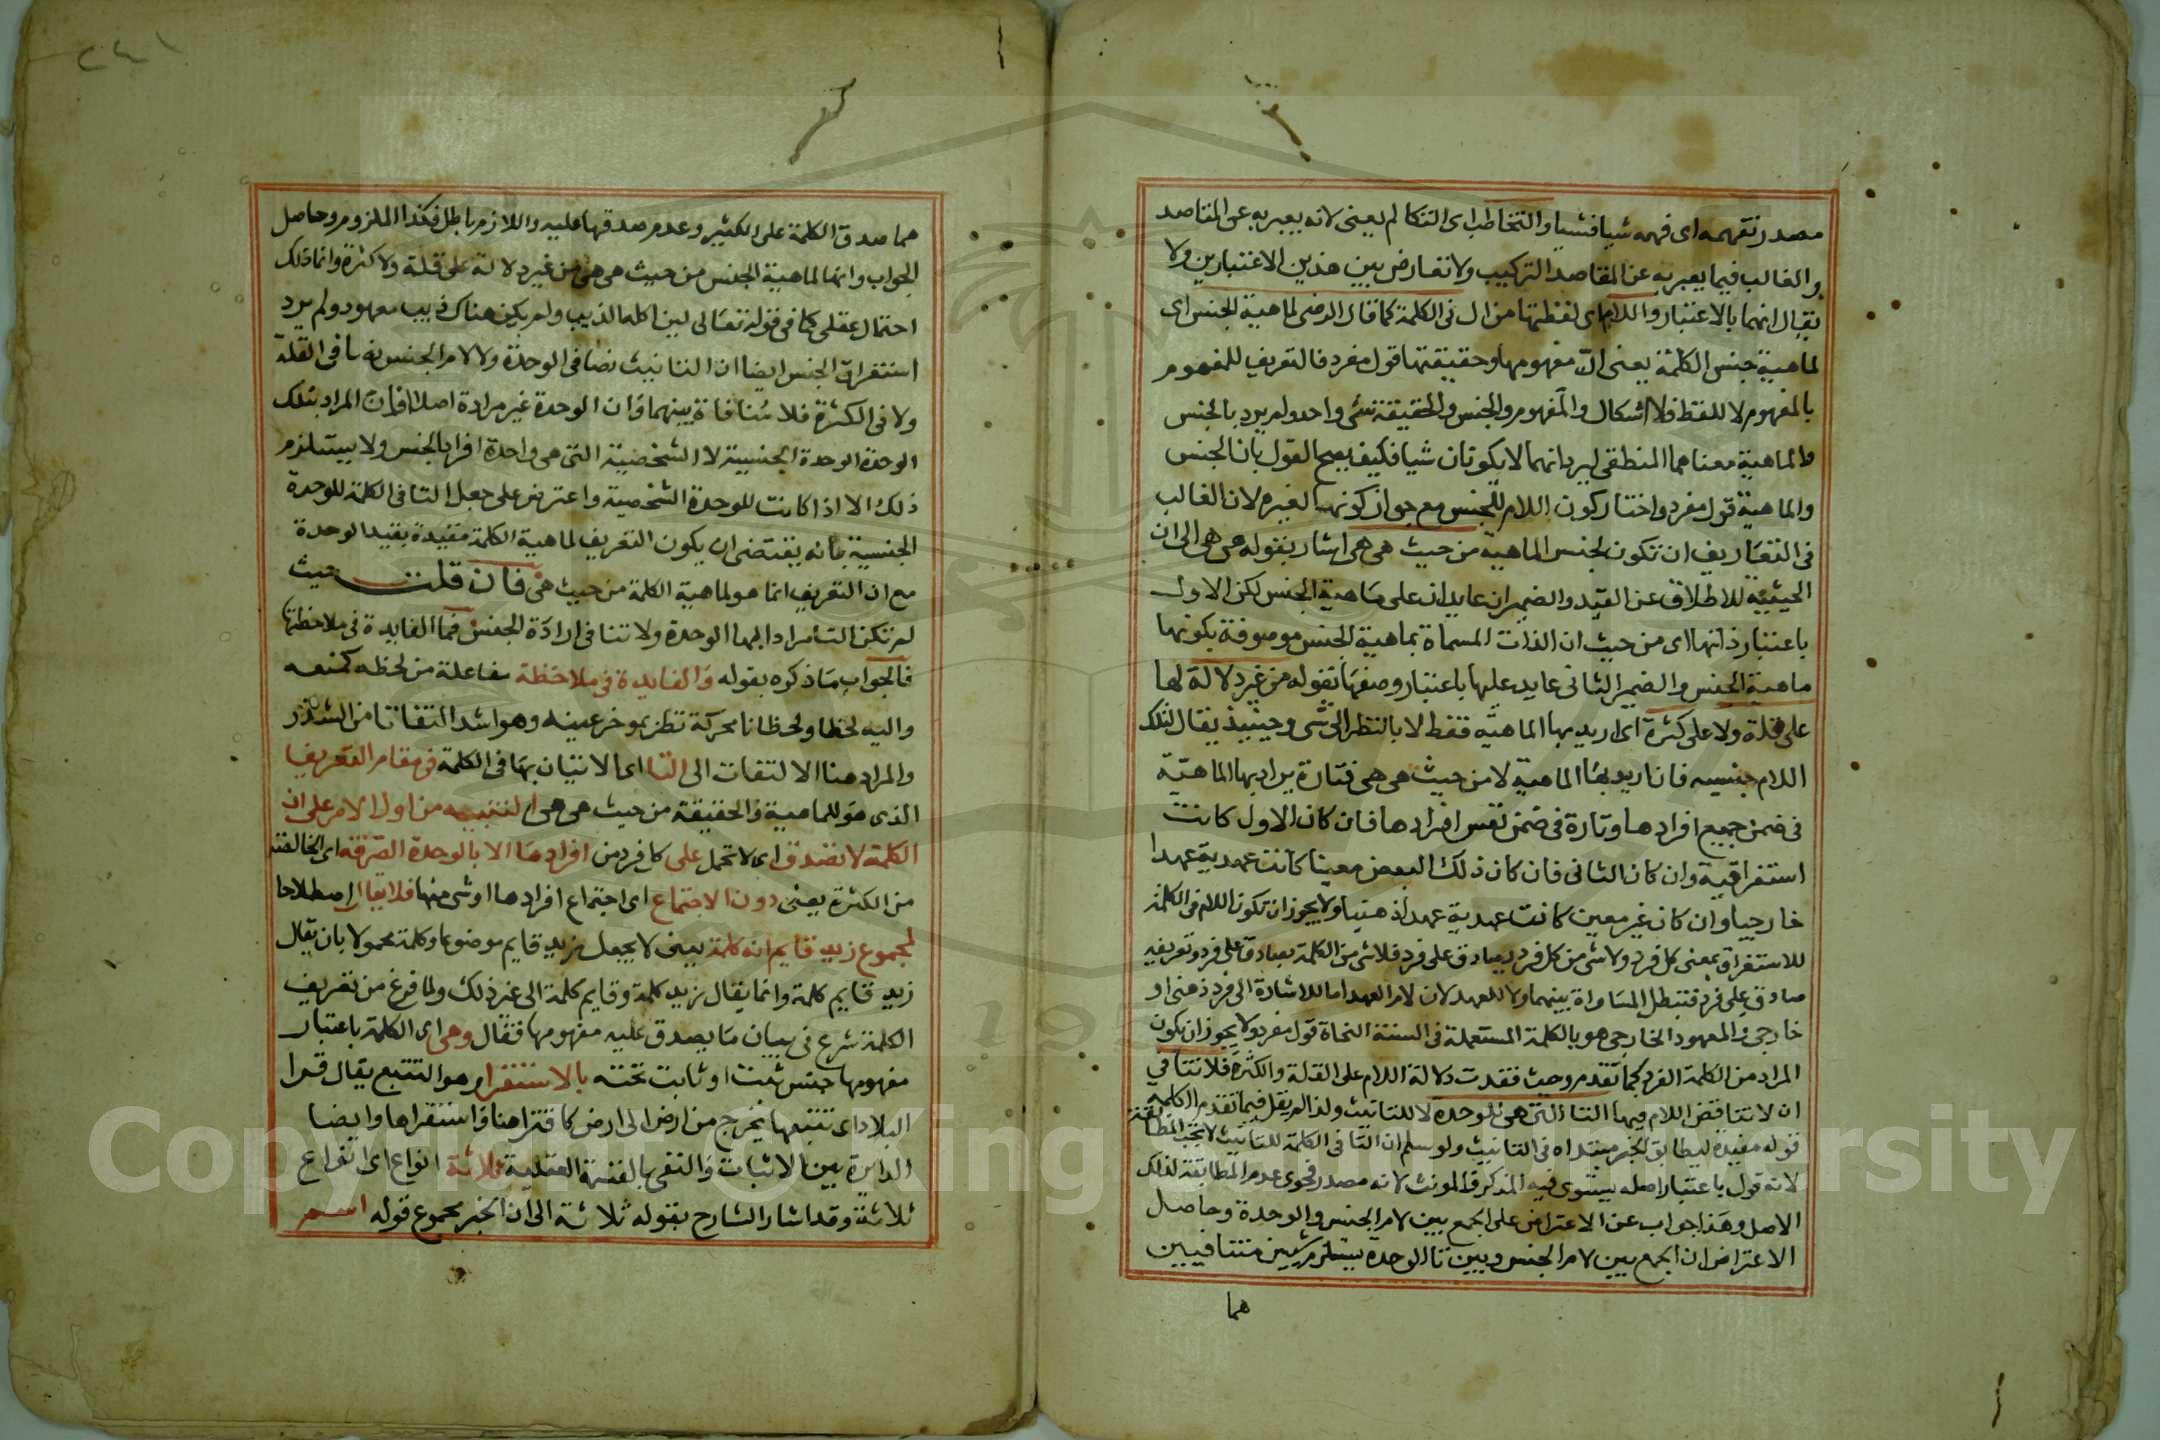 مصدر تفهمه اى فهمه شيا فشيا والتخاطب اى التكالم يعنى لانه يعبر به عن المقاصد
والغالب فيما يعبر به عن المقاصد التركيب ولا تعارض بين هذين الاعتبارين ولا
يقال انهما بالاعتبار واللام اى لفظتها من ال فى الكلمة كما قال الرضى لماهية الجنس اى
لماهية جنس الكلمة يعنى ان مفهومها وحقيقتها قول مفرد فالتعريف للمفهوم
بالمفهوم لا للفظ فلا اشكال والمفهوم والجنس والحقيقة شى واحد ولم يرد بالجنس
والماهية معناهما المنطقى ليرد انهما لا يكونان شيا فكيف يصح القول بان الجنس
والماهية قول مفرد واختار كون اللام للجنس مع جواز كونها لغيره لان الغالب
فى التعاريف ان تكون لجنس الماهية من حيث هى هى اشار بقوله هى هى الى ان
الحيثية للاطلاق عن القيد والضميران عايدان على ماهية الجنس لكن الاول
باعتبار ذاتها اى من حيث ان الذات المسماة بماهية الجنس موصوفة بكونها
ماهية الجنس والضمير الثانى عايد عليها باعتبار وصفها بقوله من غير دلالة لها
على قلة ولا على كثرة اى اريد بها الماهية فقط لا بالنظر الى شى وحينيذ يقال لتلك
اللام جنسيه فان اريد بها الماهية لا من حيث هى هى فتارة يراد بها الماهية
فى ضمن جميع افرادها وتارة فى ضمن نفس افرادها فان كان الاول كانت
استغراقية وان كان الثانى فان كان ذلك البعض معينا كانت عهدية عهدا
خارجيا وان كان غير معين كانت عهدية عهدا ذهنيا ولا يجوز ان تكون اللام فى الكلمة
للاستغراق بمعنى كل فرد ولا شى من كل فرد يصادق على فرد فلا شى من الكلمة بصادق على فرد وتعريفه
صادق على فرد فتبطل المساواة بينهما ولا للعهد لان لام العهد اما للاشارة الى فرد ذهنى او
خارجى والمعهود الخارجى هو بالكلمة المستعملة فى السنة النحاة قول مفرد ولا يجوز ان يكون
المراد من الكلمة الفرد كما تقدم وحيث فقدت دلالة اللام على القلة والكثرة فلا تنافى
ان لا تناقض اللام فيها التا التى هى للوحدة لا للتانيث ولذا لم يقل فيما تقدم الكلمة
قوله مفيدة ليطابق الخبر مبتداه فى التانيث ولو سلم ان التا فى الكلمة للتانيث لا تجب المطابقة
لانه قول باعتبار اصله يستوى فيه المذكر والمونث لانه مصدر فحوى عدم المطابقة لذلك
الاصل وهذا جواب عن الاعتراض على الجمع بين لام الجنس والوحدة وحاصل
الاعتراض ان الجمع بين لام الجنس وبين تا الوحدة يستلزم شيين متنافيين
هما
هما صدق الكلمة على الكثير وعدم صدقها عليه واللازم باطل فكذا الملزوم وحاصل
الجواب وانما لماهية الجنس من حيث هى هى من غير دلالة على قلة ولا كثرة وانما ذلك
احتمال عقلى كما فى قوله تعالى لين اكله الذيب ولم يكن هناك ذيب معهود ولم يرد
استغراق الجنس ايضا ان التانيث نصا فى الوحدة ولا لام الجنس نصا فى القلة
ولا فى الكثرة فلا منافاة بينهما وان الوحدة غير مرادة اصلا فان المراد بتلك
الوحدة الوحدة الجنسية لا الشخصية التى هى واحدة افراد الجنس ولا يستلزم
ذلك الا اذا كانت للوحدة الشخصية واعترض على جعل التا فى الكلمة للوحدة
الجنسية بانه يقتضى ان يكون التعريف لماهية الكلمة مقيدة بقيد الوحدة
مع ان التعريف انما هو لماهية الكلمة من حيث هى فان قلت حيث
لم تكن التا مرادا بها الوحدة ولا تنافى ارادة الجنس فما الفايدة فى ملاحظتها
فالجواب ما ذكره بقوله والفايدة فى ملاحظة مفاعلة من لحظه كمنعه
واليه لحظا ولحظانا محركة نظر بموخر عينه وهو اشد التفاتا من الشزر
والمراد هنا الالتفات الى التا اى الاتيان بها فى الكلمة فى مقام التعريف
الذى هو للماهية والحقيقة من حيث هى هى التنبيه من اول الامر على ان
الكلمة لا تصدق اى لا تحمل على كل فرد من افرادها الا بالوحدة الصرفة اى الخالصة
من الكثرة يعنى دون الاجتماع اى اجتماع افرادها او شى منها فلا يقال اصطلاحا
لمجموع زيد قايم انه كلمة يعنى لا يجعل زيد قايم موضوعا وكلمة محمولا بان يقال
زيد قايم كلمة وانما يقال زيد كلمة وقايم كلمة الى غير ذلك ولما فرغ من تعريف
الكلمة شرع فى بيان ما يصدق عليه مفهومها فقال وهى اى الكلمة باعتبار
مفهومها جنس ثبت او ثابت تحته بالاستقرا وهو التتبع يقال قرا
البلاد اى تتبعها يخرج من ارض الى ارض كاقتراهنا واستقراها وايضا
الدايرة بين الاثبات والنفى بالقسمة العقلية ثلاثة انواع اى انواع
ثلاثة وقد اشار الشارح بقوله ثلاثة الى ان الخبر مجموع قوله اسم
Copyright © King Saud University